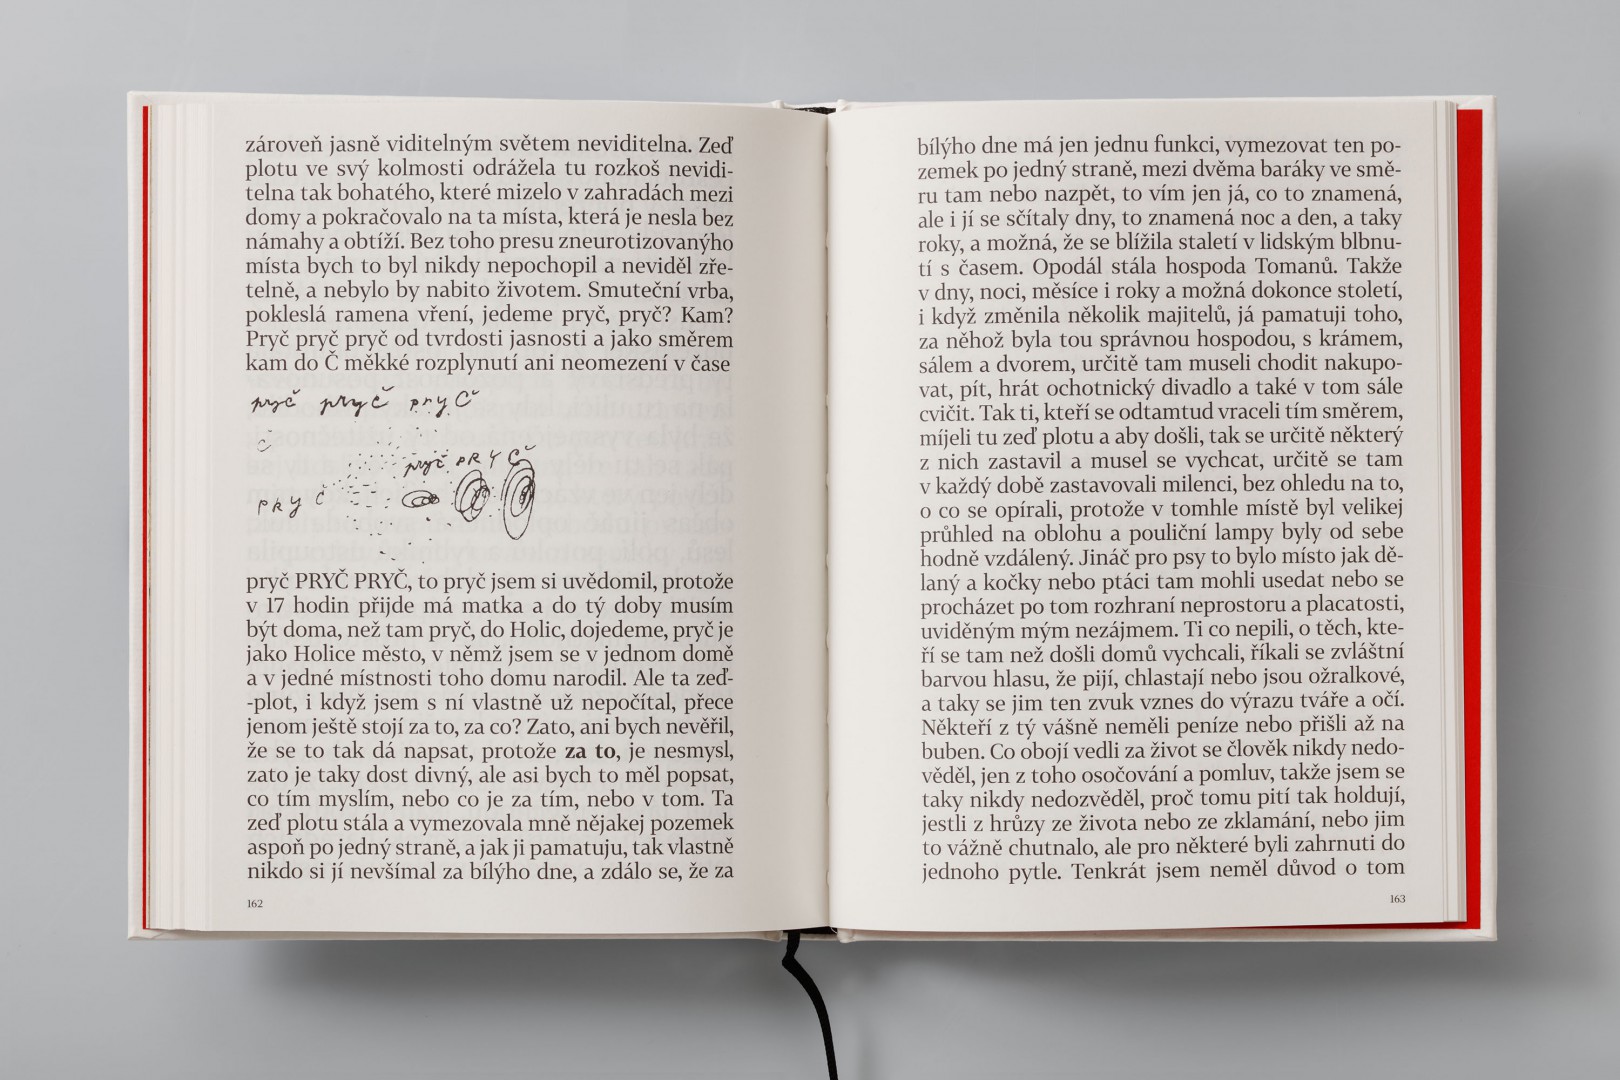 zároveň jasně viditelným světem neviditelna. Zeď
plotu ve svý kolmosti odrážela tu rozkoš nevidi-
telna tak bohatého, které mizelo v zahradách mezi
domy a pokračovalo na ta místa, která je nesla bez
námahy a obtíží. Bez toho presu zneurotizovanýho
místa bych to byl nikdy nepochopil a neviděl zře-
telně, a nebylo by nabito životem. Smuteční vrba,
pokleslá ramena vření, jedeme pryč, pryč? Kam?
Pryč pryč pryč od tvrdosti jasnosti a jako směrem
kam do Č měkké rozplynutí ani neomezení v čase
pryč pryč pryč
č
pryč PRYČ
PRYČ
pryč PRYČ PRYČ, to pryč jsem si uvědomil, protože
v 17 hodin přijde má matka a do tý doby musím
být doma, než tam pryč, do Holic, dojedeme, pryč je
jako Holice město, v němž jsem se v jednom domě
a v jedné místnosti toho domu narodil. Ale ta zeď-
-plot, i když jsem s ní vlastně už nepočítal, přece
jenom ještě stojí za to, za co? Zato, ani bych nevěřil,
že se to tak dá napsat, protože za to, je nesmysl,
zato je taky dost divný, ale asi bych to měl popsat,
co tím myslím, nebo co je za tím, nebo v tom. Ta
zeď plotu stála a vymezovala mně nějakej pozemek
aspoň po jedný straně, a jak ji pamatuju, tak vlastně
nikdo si jí nevšímal za bílýho dne, a zdálo se, že za
162
bílýho dne má jen jednu funkci, vymezovat ten po-
zemek po jedný straně, mezi dvěma baráky ve smě-
ru tam nebo nazpět, to vím jen já, co to znamená,
ale i jí se sčítaly dny, to znamená noc a den, a taky
roky, a možná, že se blížila staletí v lidským blbnu-
tí s časem. Opodál stála hospoda Tomanů. Takže
v dny, noci, měsíce i roky a možná dokonce století,
i když změnila několik majitelů, já pamatuji toho,
za něhož byla tou správnou hospodou, s krámem,
sálem a dvorem, určitě tam museli chodit nakupo-
vat, pít, hrát ochotnický divadlo a také v tom sále
cvičit. Tak ti, kteří se odtamtud vraceli tím směrem,
míjeli tu zeď plotu a aby došli, tak se určitě některý
z nich zastavil a musel se vychcat, určitě se tam
v každý době zastavovali milenci, bez ohledu na to,
o co se opírali, protože v tomhle místě byl velikej
průhled na oblohu a pouliční lampy byly od sebe
hodně vzdálený. Jináč pro psy to bylo místo jak dě-
laný a kočky nebo ptáci tam mohli usedat nebo se
procházet po tom rozhraní neprostoru a placatosti,
uviděným mým nezájmem. Ti co nepili, o těch, kte-
ří se tam než došli domů vychcali, říkali se zvláštní
barvou hlasu, že pijí, chlastají nebo jsou ožralkové,
a taky se jim ten zvuk vznes do výrazu tváře a očí.
Někteří z tý vášně neměli peníze nebo přišli až na
buben. Co obojí vedli za život se člověk nikdy nedo-
věděl, jen z toho osočování a pomluv, takže jsem se
taky nikdy nedozvěděl, proč tomu pití tak holdují,
jestli z hrůzy ze života nebo ze zklamání, nebo jim
to vážně chutnalo, ale pro některé byli zahrnuti do
jednoho pytle. Tenkrát jsem neměl důvod o tom
163